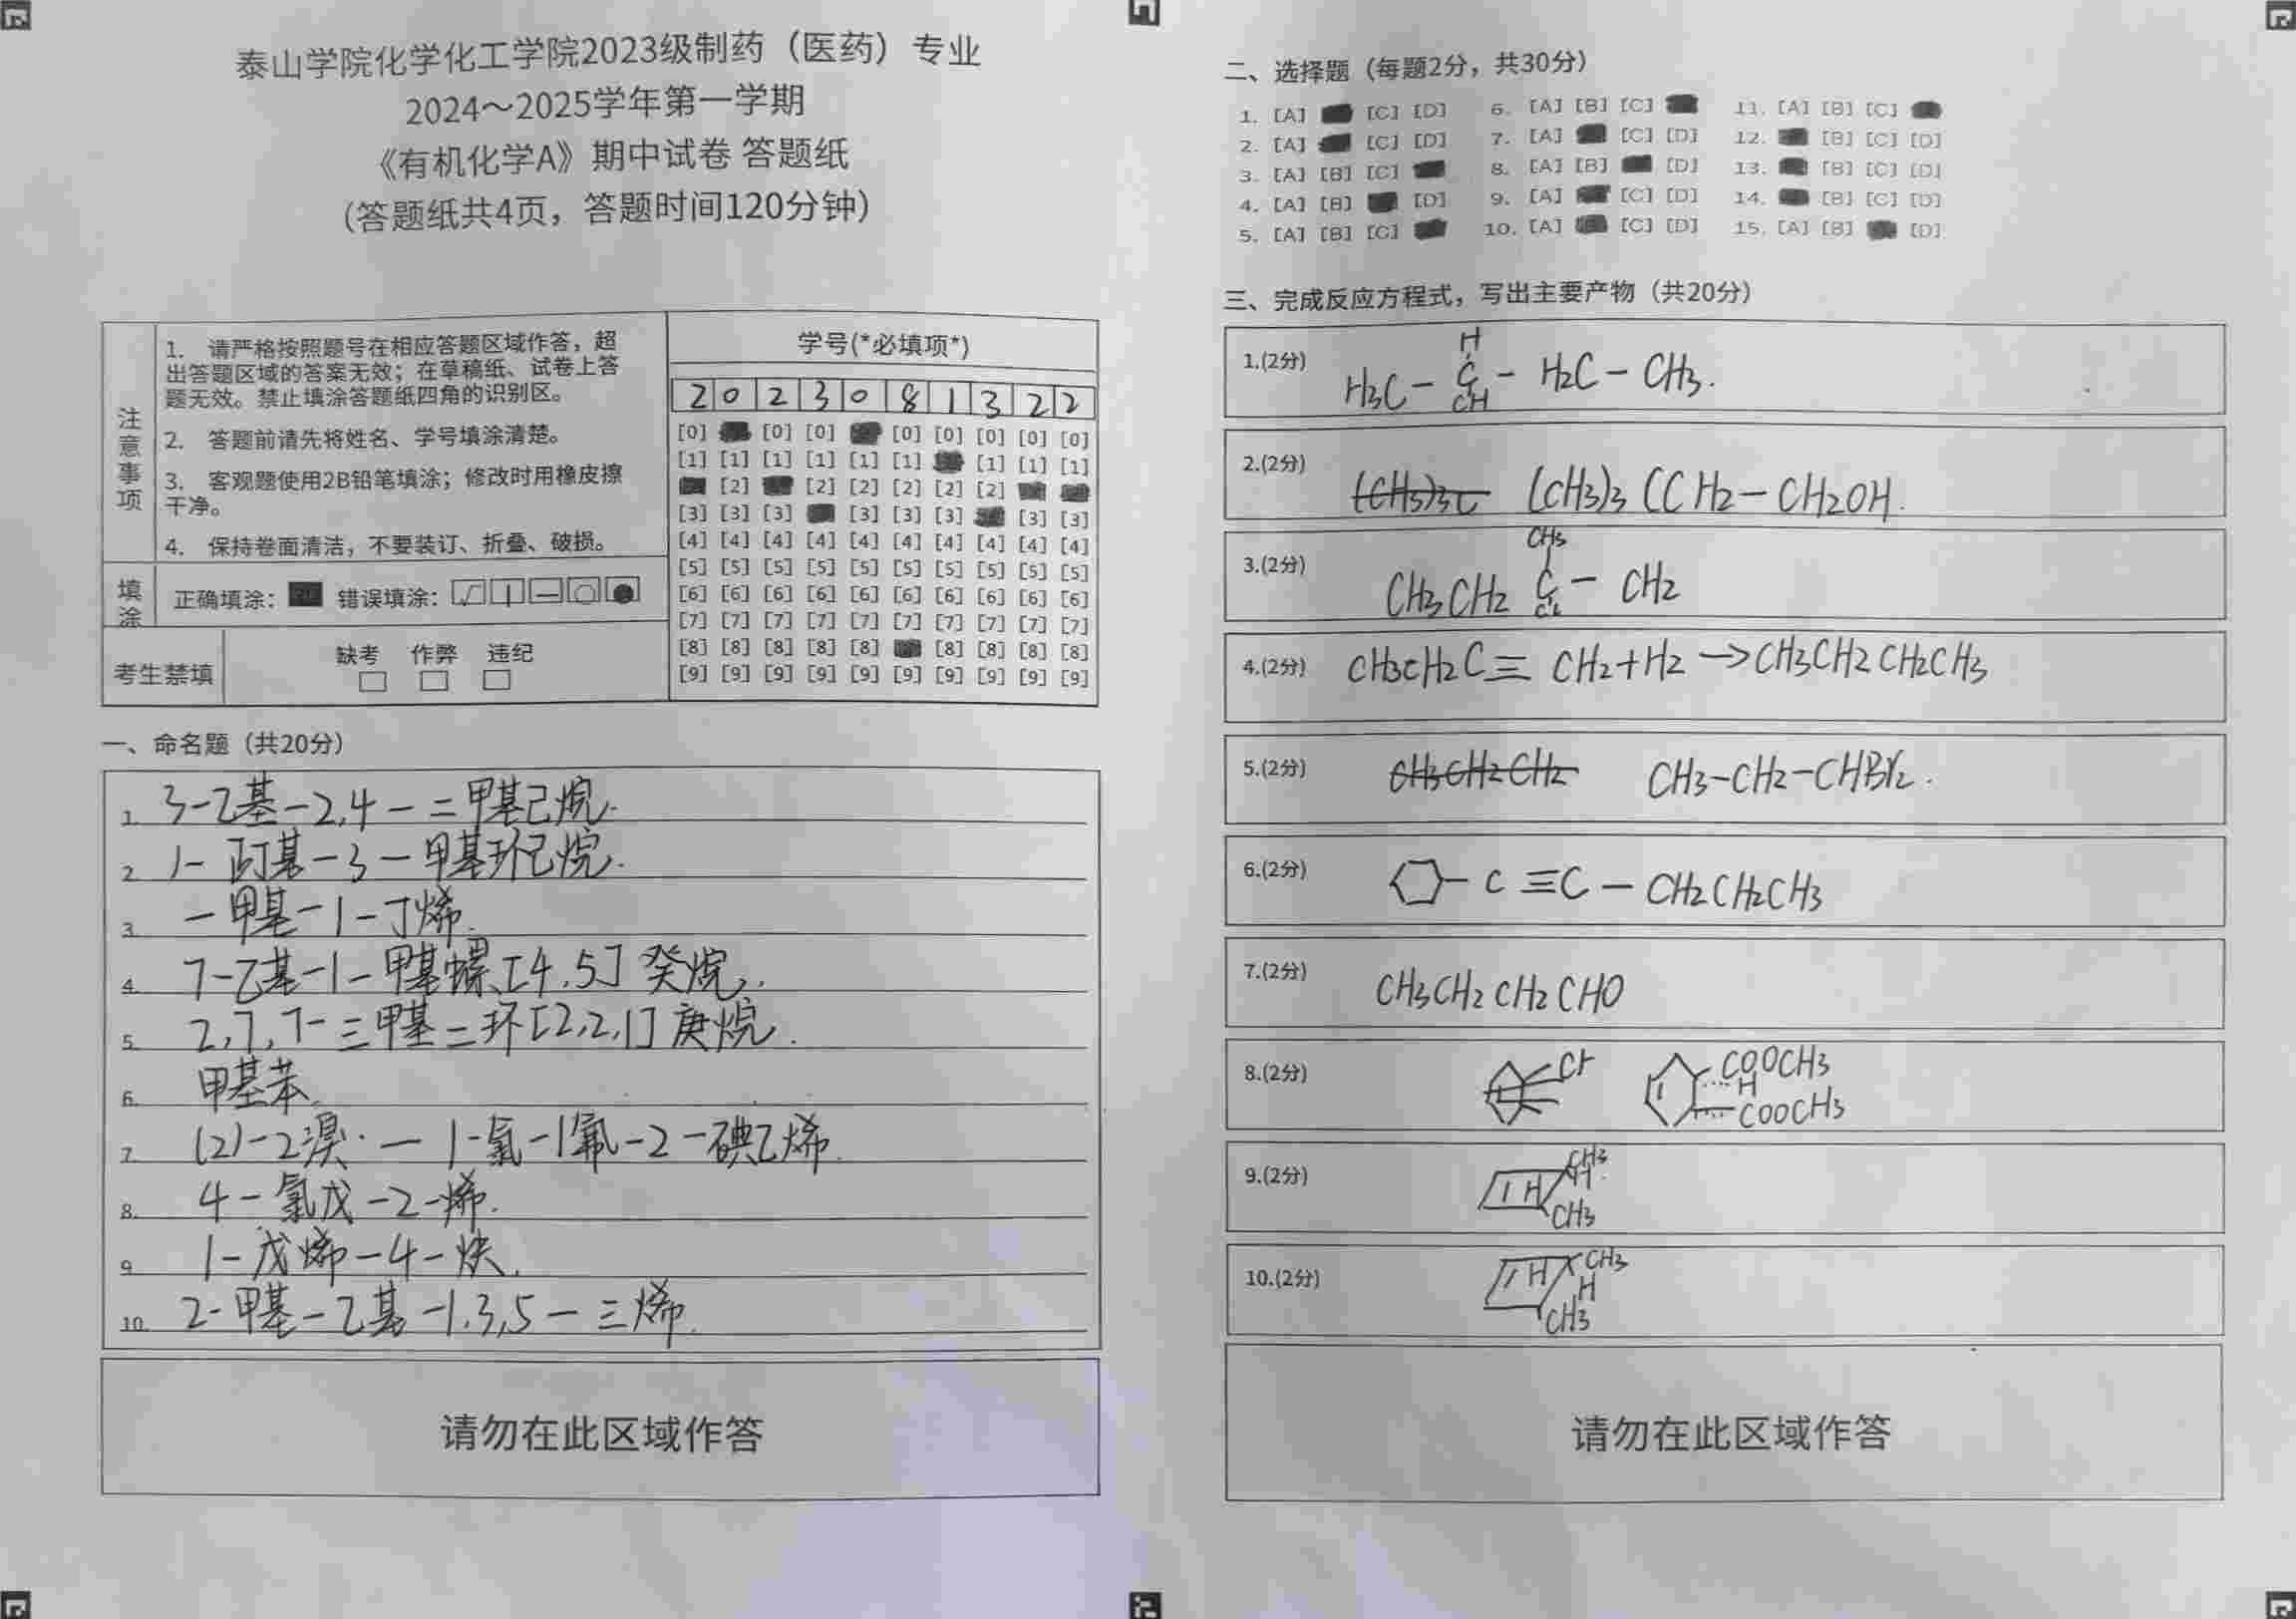 泰山学院化学化工学院2023级制药（医药）专业
2024～2025学年第一学期
《有机化学A》期中试卷 答题纸
(答题纸共4页，答题时间120分钟)
注意事项
1. 请严格按照题号在相应答题区域作答，超
出答题区域的答案无效；在草稿纸、试卷上答
题无效。禁止填涂答题纸四角的识别区。
2. 答题前请先将姓名、学号填涂清楚。
3. 客观题使用2B铅笔填涂；修改时用橡皮擦
干净。
4. 保持卷面清洁，不要装订、折叠、破损。
填涂
正确填涂： 错误填涂：
考生禁填
缺考 作弊 违纪
学号(*必填项*)
2 0 2 3 0 8 1 3 2 2
[0] [0] [0] [0] [0] [0] [0] [0]
[1] [1] [1] [1] [1] [1] [1] [1] [1]
[2] [2] [2] [2] [2] [2]
[3] [3] [3] [3] [3] [3] [3] [3]
[4] [4] [4] [4] [4] [4] [4] [4] [4] [4]
[5] [5] [5] [5] [5] [5] [5] [5] [5] [5]
[6] [6] [6] [6] [6] [6] [6] [6] [6] [6]
[7] [7] [7] [7] [7] [7] [7] [7] [7] [7]
[8] [8] [8] [8] [8] [8] [8] [8] [8]
[9] [9] [9] [9] [9] [9] [9] [9] [9] [9]
一、命名题（共20分）
1. 3-乙基-2,4-二甲基己烷.
2. 1-丁基-3-甲基环己烷.
3. -甲基-1-丁烯.
4. 7-乙基-1-甲基螺[4.5]癸烷.
5. 2,7,7-三甲基二环[2,2,1]庚烷.
6. 甲基苯
7. (2)-2溴·-1-氯-1氟-2-碘乙烯.
8. 4-氯戊-2-烯.
9. 1-戊烯-4-炔.
10. 2-甲基-乙基-1.3,5-三烯.
请勿在此区域作答
二、选择题（每题2分，共30分）
1. [A] [C] [D] 6. [A] [B] [C] 11. [A] [B] [C]
2. [A] [C] [D] 7. [A] [C] [D] 12. [B] [C] [D]
3. [A] [B] [C] 8. [A] [B] [D] 13. [B] [C] [D]
4. [A] [B] [D] 9. [A] [C] [D] 14. [B] [C] [D]
5. [A] [B] [C] 10. [A] [C] [D] 15. [A] [B] [D]
三、完成反应方程式，写出主要产物（共20分）
H
1.(2分) H3C-C-H2C-CH3.
CH
2.(2分) (CH3)3C (CH3)3(CH2-CH2OH.
CH3
3.(2分) CH3CH2 C-CH2
Cl
4.(2分) CH3CH2C≡CH2+H2→CH3CH2CH2CH3
5.(2分) CH3CH2CH2 CH3-CH2-CHBr2.
6.(2分) -C≡C-CH2CH2CH3
7.(2分) CH3CH2CH2CHO
8.(2分) COOCH3
H
COOCH3
9.(2分) H CH3
H
CH3
10.(2分) H CH3
H
CH3
请勿在此区域作答